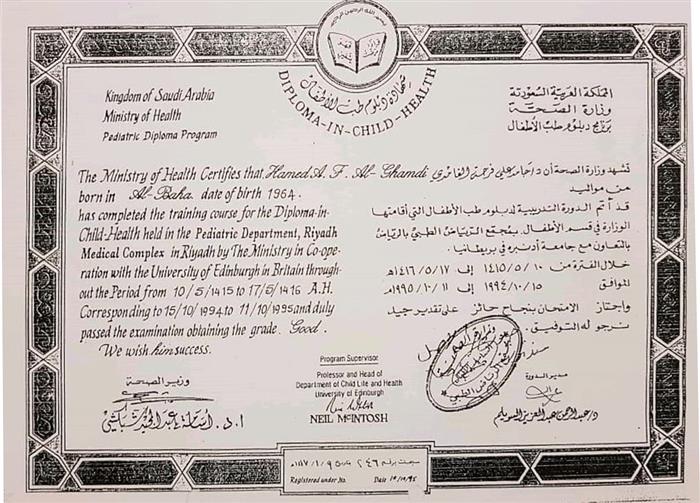 بسم الله الرحمن الرحيم
شهادة دبلوم طب الأطفال
DIPLOMA-IN-CHILD-HEALTH
Kingdom of Saudi Arabia
Ministry of Health
Pediatric Diploma Program
المملكة العربية السعودية
وزارة الصحة
برنامج دبلوم طب الأطفال
The Ministry of Health Certifies that Hamed A. F. Al-Ghamdi
born in Al-Baha date of birth 1964
has completed the training course for the Diploma-in-
Child-Health held in the Pediatric Department, Riyadh
Medical Complex in Riyadh by The Ministry in Co-ope-
ration with the University of Edinburgh in Britain through-
out the Period from 10/5/1415 to 17/5/1416 A.H.
Corresponding to 15/10/1994 to 11/10/1995 and duly
passed the examination obtaining the grade. Good.
We wish him success.
تشهد وزارة الصحة أن د/حامد علي فرحة الغامدي
من مواليد
قد أتم الدورة التدريبية لدبلوم طب الأطفال التي أقامتها
الوزارة في قسم الأطفال بمجمع الرياض الطبي بالرياض
بالتعاون مع جامعة أدنبره في بريطانيا.
خلال الفترة من ١٤١٥/٥/١٠ إلى ١٤١٦/٥/١٧هـ
الموافق ١٩٩٤/١٠/١٥ إلى ١٩٩٥/١٠/١١م
واجتاز الامتحان بنجاح حائز على تقدير جيد
نرجو له التوفيق.
وزير الصحة
ا.د. أسامة عبدالمجيد شبكشي
Program Supervisor
Professor and Head of
Department of Child Life and Health
University of Edinburgh
NEIL McINTOSH
مدير الدورة
د/عبدالرحمن عبدالعزيز السويلم
سجلت برقم ٢٤٦
Registered under No. Date 10/10/95